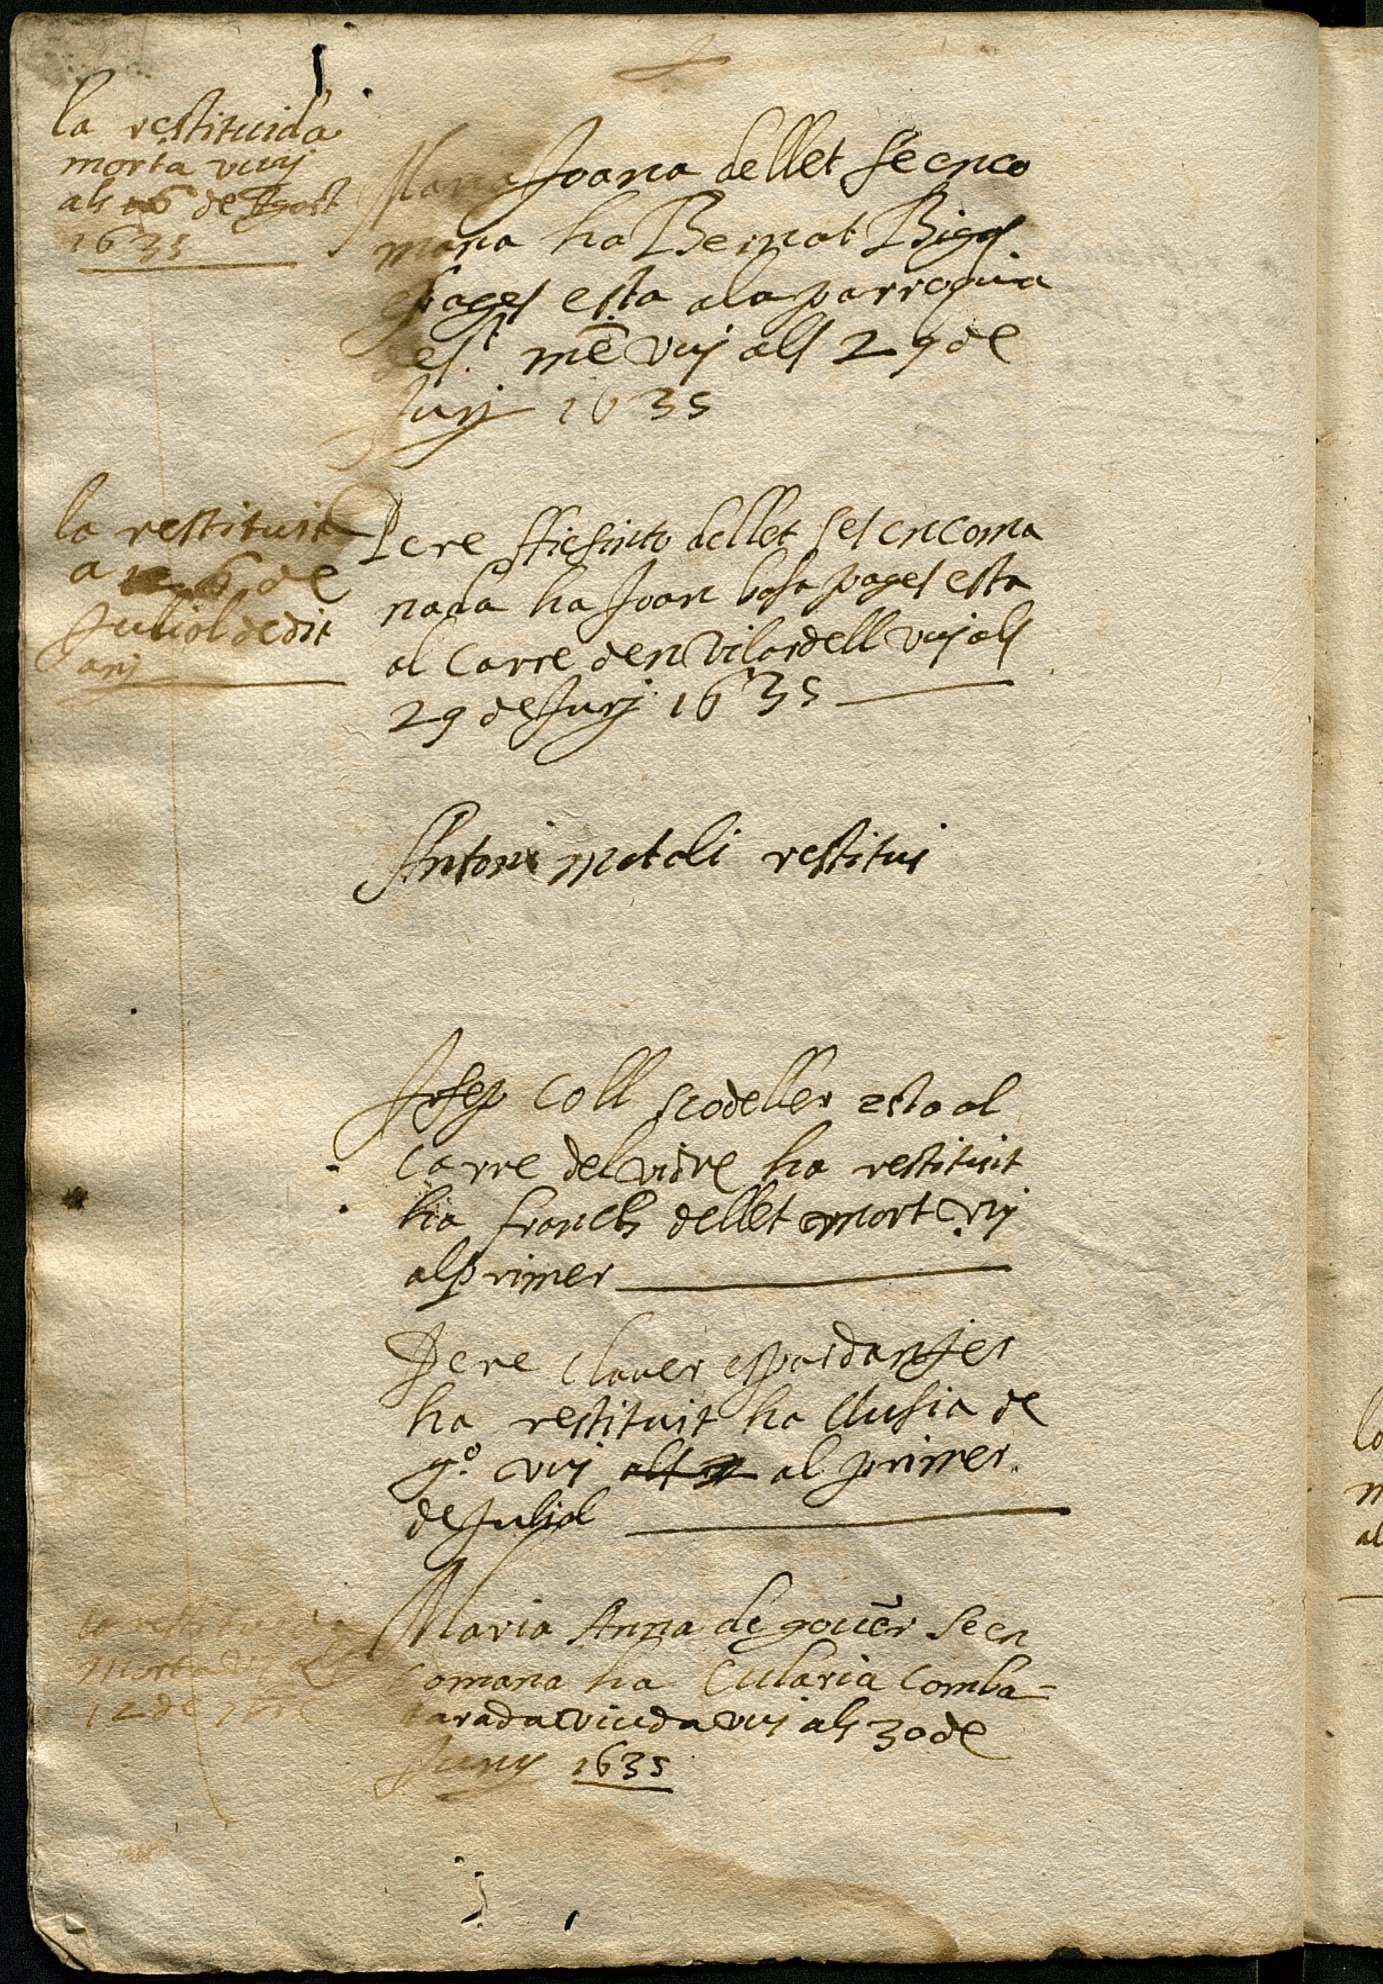 la restituida
morta vuy
als 16 de Agost
1635
Maria Joana dellet se enco
mana ha Bernat Bigas
pages esta ala parroquia
de St. mē vuj als 29 de
Junj 1635
la restituit
a 6 de
Juliol de dit
anj
Pere Jhesinto dellet ses encoma
nada ha Joan bosa pages esta
al Carre den Vilardell vuj als
29 de Junj 1635
Antoni matali restitui
Josep Coll scodeller esta al
Carre del vidre ha restituit
ha franch dellet mort vuj
al primer
Pere Clauer espardanjer
ha restituit ha llusia de
gº. vuj als 2 al primer.
de Juliol
la restituida
morta vuj als
12 de
Maria Anna de gouēr se en
comana ha Eularia Comba-
larada viuda vuj als 30 de
Juny 1635